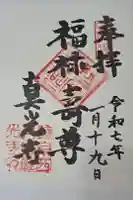 奉拝
令和七年
一月十九日
福禄寿尊
真光寺